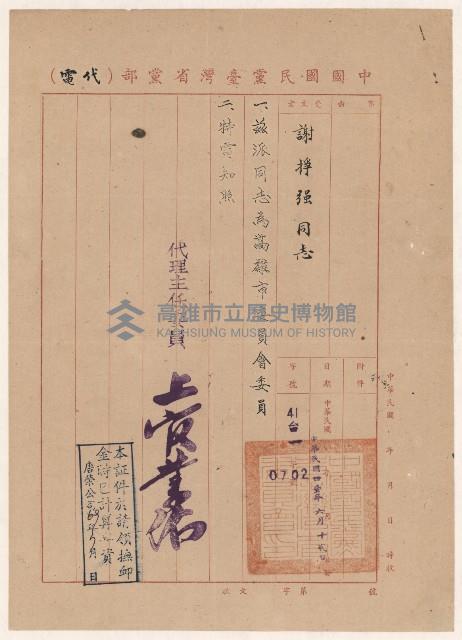 中國國民黨臺灣省黨部（代電）
受文者
謝掙强同志
一、茲派同志為高雄市委員會委員
二、特電知照
代理主任委員
上官業佑
附件
日期
字號
中華民國
中華民國四壹年六月十貳日
41
台一
0702
中華民國 年 月 日 時收
本証件於請領撫卹
金時已計算年資
唐榮公司69年7月 日
字第 號
收文
高雄市立歷史博物館
KAOHSIUNG MUSEUM OF HISTORY